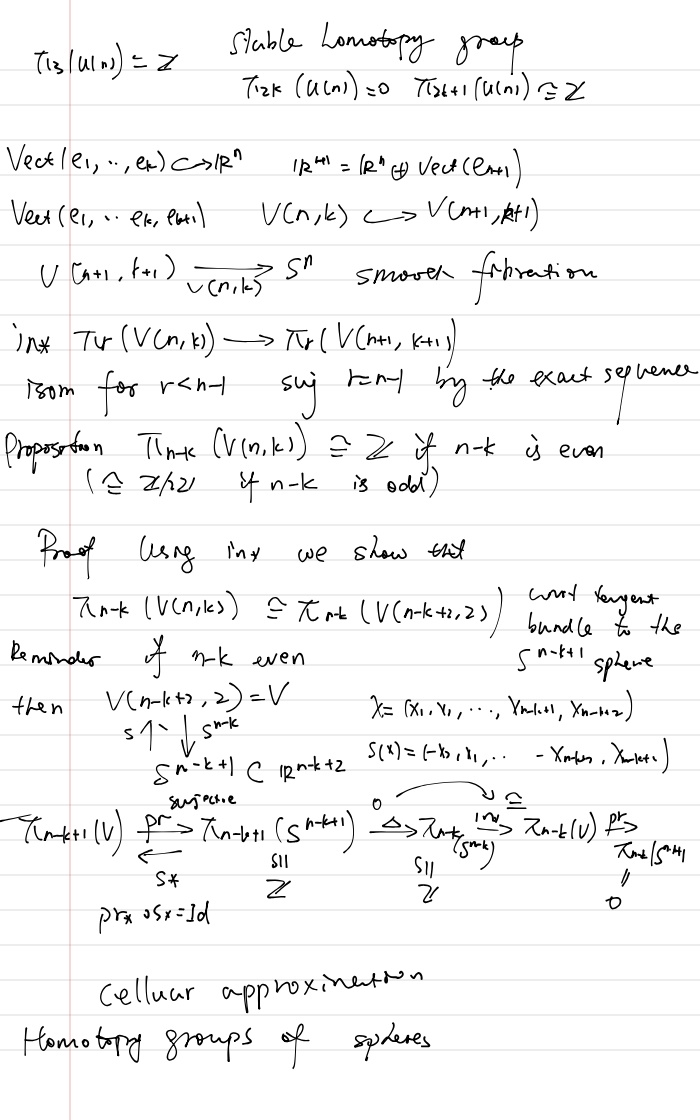 π₃(U(n)) = Z    Stable homotopy group
π₂ₖ(U(n)) = 0   π₂ₖ₊₁(U(n)) ≅ Z
Vect(e₁, .., eₖ) ↪ ℝⁿ   ℝⁿ⁺¹ = ℝⁿ ⊕ Vect(eₙ₊₁)
Vect(e₁, .. eₖ, eₖ₊₁)   V(n,k) ↪ V(n+1, k+1)
V(n+1, k+1) →_{V(n,k)} Sⁿ   smooth fibration
in* πr(V(n,k)) → πr(V(n+1, k+1)
isom for r<n-1   surj r=n-1 by the exact sequence
Proposition πₙ₋ₖ(V(n,k)) ≅ Z if n-k is even
(≅ Z/2Z if n-k is odd)
Proof Using in* we show that
πₙ₋ₖ(V(n,k)) ≅ πₙ₋ₖ(V(n-k+2,2))   unit tangent
bundle to the
Sⁿ⁻ᵏ⁺¹ sphere
Reminder if n-k even
then V(n-k+2, 2) = V   x = (x₁, x₁, ..., xₙ₋ₖ₊₁, xₙ₋ₖ₊₂)
s↑ ↓ Sⁿ⁻ᵏ   s(x) = (-x₂, x₁, .. -xₙ₋ₖ₊₂, xₙ₋ₖ₊₁)
Sⁿ⁻ᵏ⁺¹ ⊂ ℝⁿ⁻ᵏ⁺²
surjective   0   ≅
πₙ₋ₖ₊₁(V) pr→ πₙ₋ₖ₊₁(Sⁿ⁻ᵏ⁺¹) Δ→ πₙ₋ₖ(Sⁿ⁻ᵏ) in*→ πₙ₋ₖ(V) pr→ πₙ₋ₖ(Sⁿ⁻ᵏ⁺¹)
← s*   S||   S||   ||
Z   Z   0
pr* ∘ s* = Id
Celluar approximation
Homotopy groups of spheres